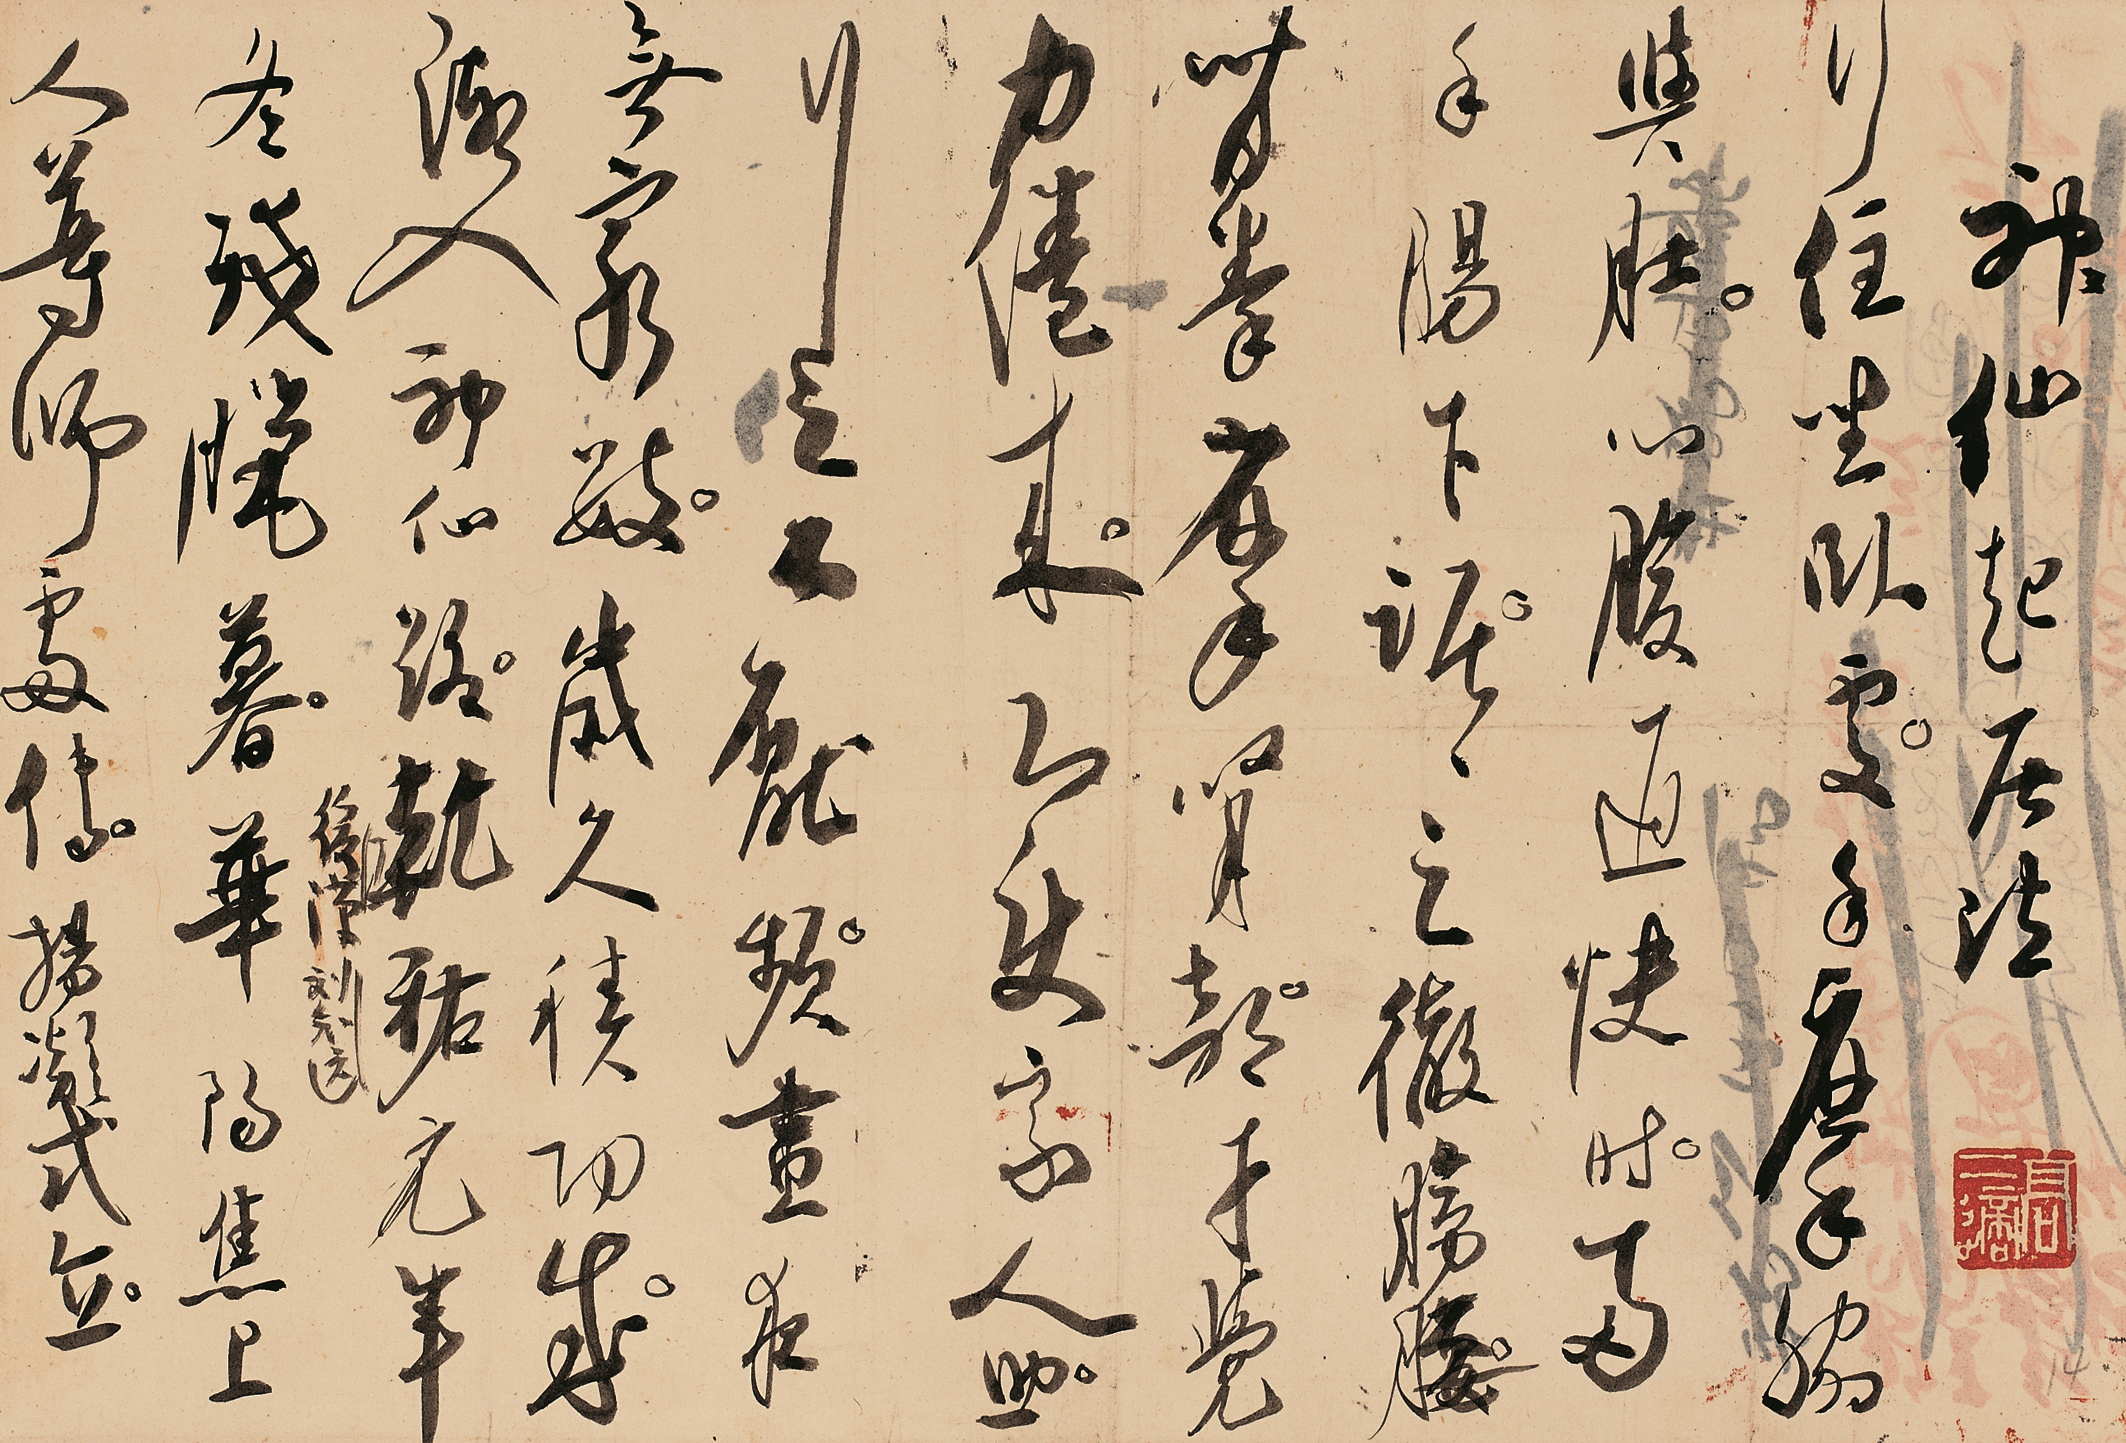 神仙起居法
行住坐臥處。手摩脅
與肚。心腹通快時。兩
手腸下踞。〻之徹膀腰。
背拳摩腎部。才覺
力倦來。即使家人助。
行之不厭頻。晝夜
無窮數。歲久積功成。
漸入神仙路。乾祐元年
後漢 刘知远
冬殘臘暮。華陽焦上
人尊師處傳。楊凝式